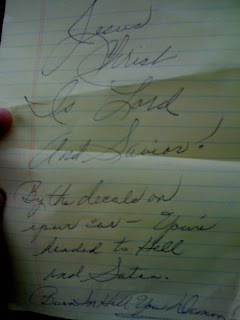 Jesus
Christ
Is Lord
And Savior!
By the decals on
your car - You're
headed to Hell
and Satan.
(Burn In Hell You Demon)